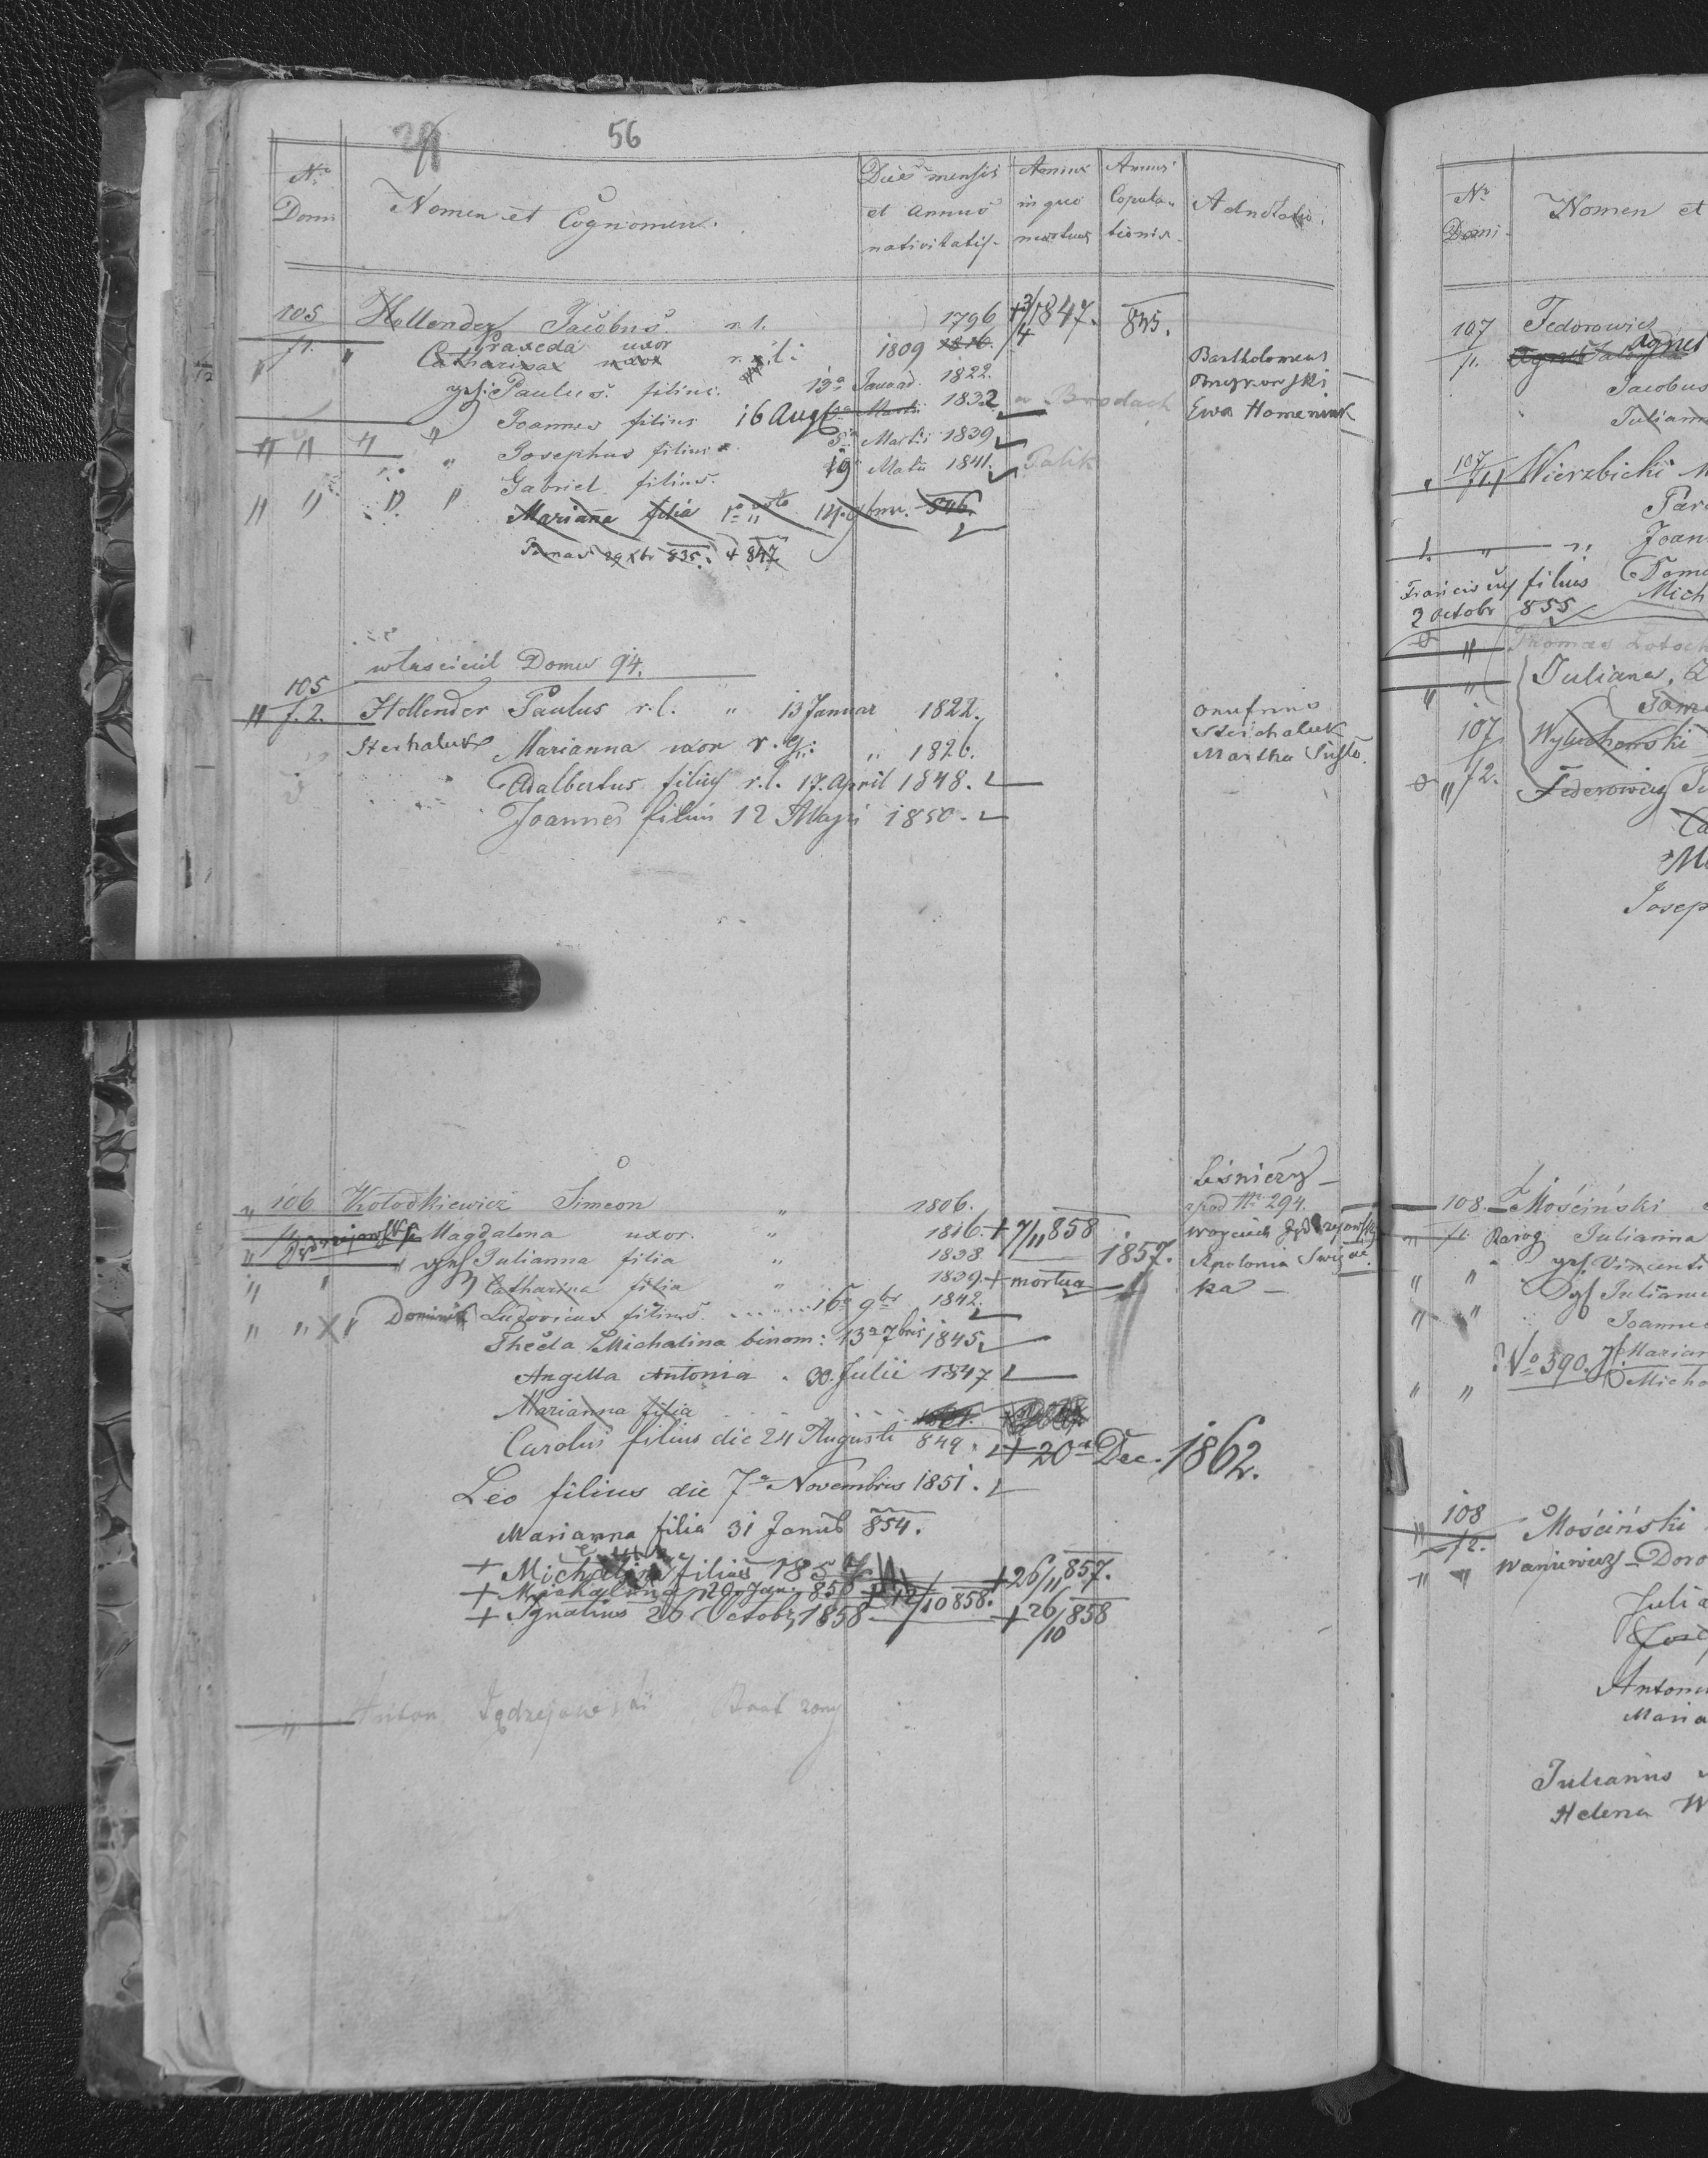 56
Nro Domi
Nomen et Cognomen.
Dies mensis et annus nativitatis
Annus in quo mortuus
Annus Copulationis
Adnotatio.
105 Hollender Jacobus r. l. 1796 + 3/4 1847. 845.
f1. " Praxeda uxor 1809 1816.
Catharina uxor r. l.
Bartholomeus
Paulus filius. 13a Januar 1822.
Joannes filius 16 Aug Martii 1832 w Brodach
Ewa Homeniuk
" " " " Josephus filius 5a Martii 1839
Gabriel filius. 19 Maii 1841. Palik
" " " " Marianna filia 14 846.
Tomas 29 835. + 847
właściciel Domu 94.
105
" f. 2. Hollender Paulus r. l. " 13 Januar 1822.
Onufrius
Stechaluk Marianna uxor r. g. " 1826.
Stechaluk
Martha
Adalbertus filius r. l. 17. April 1848.
Joannes filius 12 Maji 1850
Leśniczy
" 106 Kołodkiewicz Simeon " 1806.
zpod Nr 294.
Jędrzejowska Magdalena uxor. " 1816 + 7/11 858
Wojciech Jędrzejowski
" Julianna filia " 1838 1857.
Apolonia Święcicka
" " Catharina filia " 1839. + mortua
" " X " Dominik Ludovicus filius 16a 9br 1842.
Thecla Michalina binom: 13a 7bris 1845.
Angella Antonia . Julii 1847
Marianna filia
Carolus filius die 24 Augusti 849. + 20a Dec. 1862.
Leo filius die 7a Novembris 1851.
Marianna filia 31 Januar 854.
+ Michalina filia 1857 + 26/11 857.
+ 20 858 + 12/10 858.
+ Ignatius 26 Octobr 1858 + 26/10 858
" Anton Jędrzejowski Brat żony
Nro Domi.
Nomen et
107 Fedorowicz
f1. Agnes Agnes
Jacobus
Julianna
107
f1 Wierzbicki M
Joan
Franciscus filius
2 Octobr 855
Mich
Thomas
" " Juliana,
107 Wyluchowski
" f2. Federowicz
Josep
108. Mościński
f1. Rarog Julianna
Vincenti
" " Julianu
" " Joannes
No 390.
Marian
" " Micha
108
f2. Mościński
" " Waniewicz Doro
Julia
Antoni
Maria
Julianus
Helena W